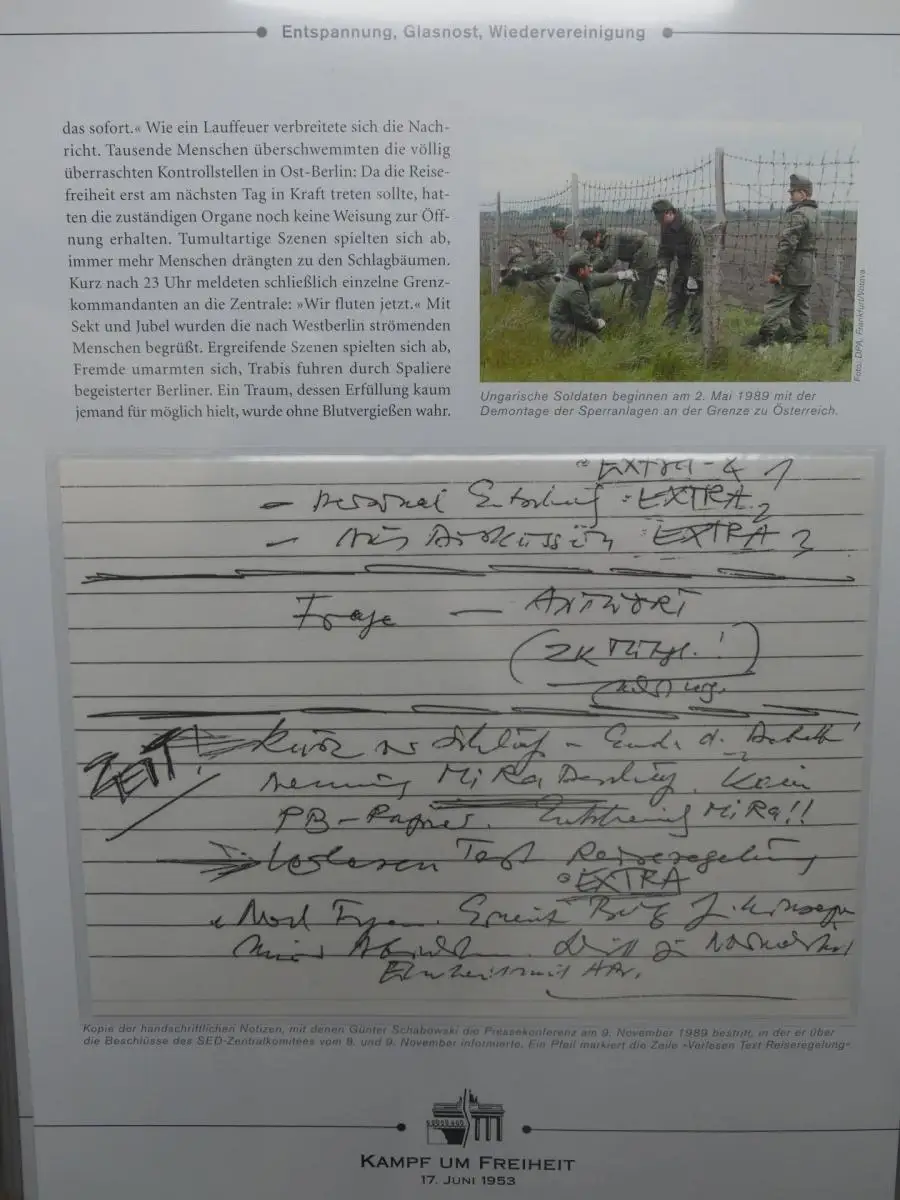 Entspannung, Glasnost, Wiedervereinigung
das sofort.« Wie ein Lauffeuer verbreitete sich die Nach-
richt. Tausende Menschen überschwemmten die völlig
überraschten Kontrollstellen in Ost-Berlin: Da die Reise-
freiheit erst am nächsten Tag in Kraft treten sollte, hat-
ten die zuständigen Organe noch keine Weisung zur Öff-
nung erhalten. Tumultartige Szenen spielten sich ab,
immer mehr Menschen drängten zu den Schlagbäumen.
Kurz nach 23 Uhr meldeten schließlich einzelne Grenz-
kommandanten an die Zentrale: »Wir fluten jetzt.« Mit
Sekt und Jubel wurden die nach Westberlin strömenden
Menschen begrüßt. Ergreifende Szenen spielten sich ab,
Fremde umarmten sich, Trabis fuhren durch Spaliere
begeisterter Berliner. Ein Traum, dessen Erfüllung kaum
jemand für möglich hielt, wurde ohne Blutvergießen wahr.
Foto: DPA, Frankfurt/Votava
Ungarische Soldaten beginnen am 2. Mai 1989 mit der
Demontage der Sperranlagen an der Grenze zu Österreich.
EXTRA 1
- EXTRA 2
- Diskussion EXTRA 3
Frage — ANTWORT
(ZK !)
ZEIT!
Kein
PB-Papier. MiRa!!
Verlesen Text Reiseregelung
EXTRA
Kopie der handschriftlichen Notizen, mit denen Günter Schabowski die Pressekonferenz am 9. November 1989 bestritt, in der er über
die Beschlüsse des SED-Zentralkomitees vom 8. und 9. November informierte. Ein Pfeil markiert die Zeile »Verlesen Text Reiseregelung«
KAMPF UM FREIHEIT
17. JUNI 1953